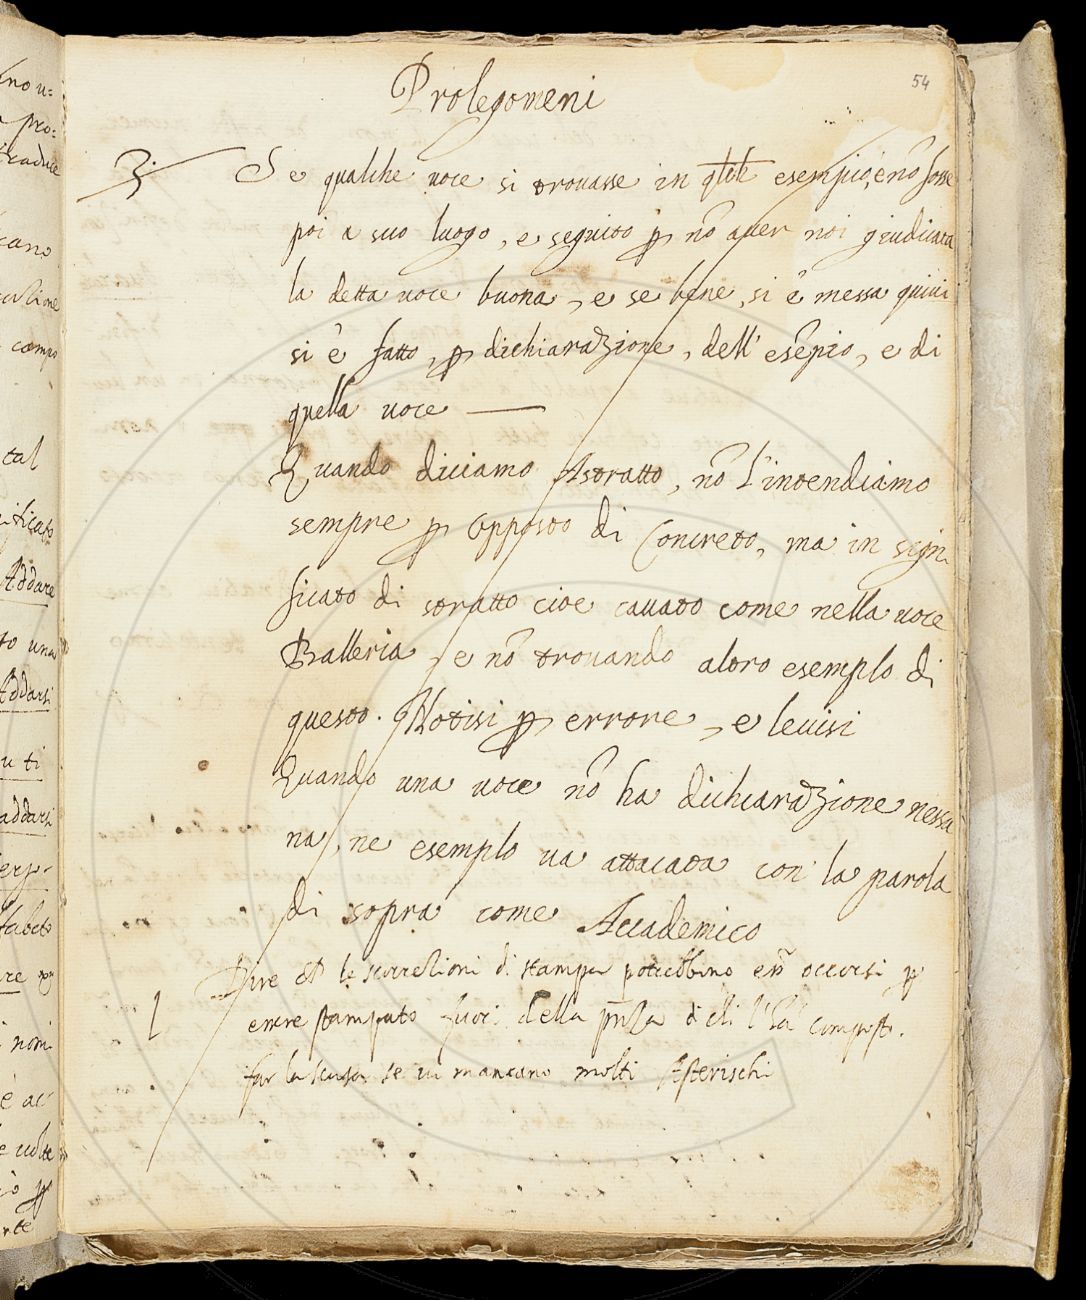 54
Prolegomeni
3. Se qualche voce si trovasse in qlch esempio, e nõ fosse
poi a suo luogo, e seguito ꝑ nõ aver noi giudicata
la detta voce buona, e se bene, si è messa quivi
si è fatto, ꝑ dichiarazione, dell' esẽpio, e di
quella voce —
Quando diciamo Astratto, nõ l'intendiamo
sempre ꝑ opposto di Concreto, ma in signi
ficato di stratto cioe cavato come nella voce
Balleria, e nõ trovando altro esemplo di
questo. Notisi ꝑ errore, e levisi
Quando una voce nõ ha dichiarazione nessu
na, ne esemplo va attacata con la parola
di sopra come Accademico
Dire le scorrezioni di stampa potrebbino occorsi ꝑ
stampato fuori della di chi l'ha composto.
far la scusa se vi mancano molti Asterischi
no u=
pro=
traduce
cano
campo
tal
ificato
Addare
to una
Addarsi
u ti
addarsi
fabeto
re
nomi
e ac-
e volte
ꝑ
rte